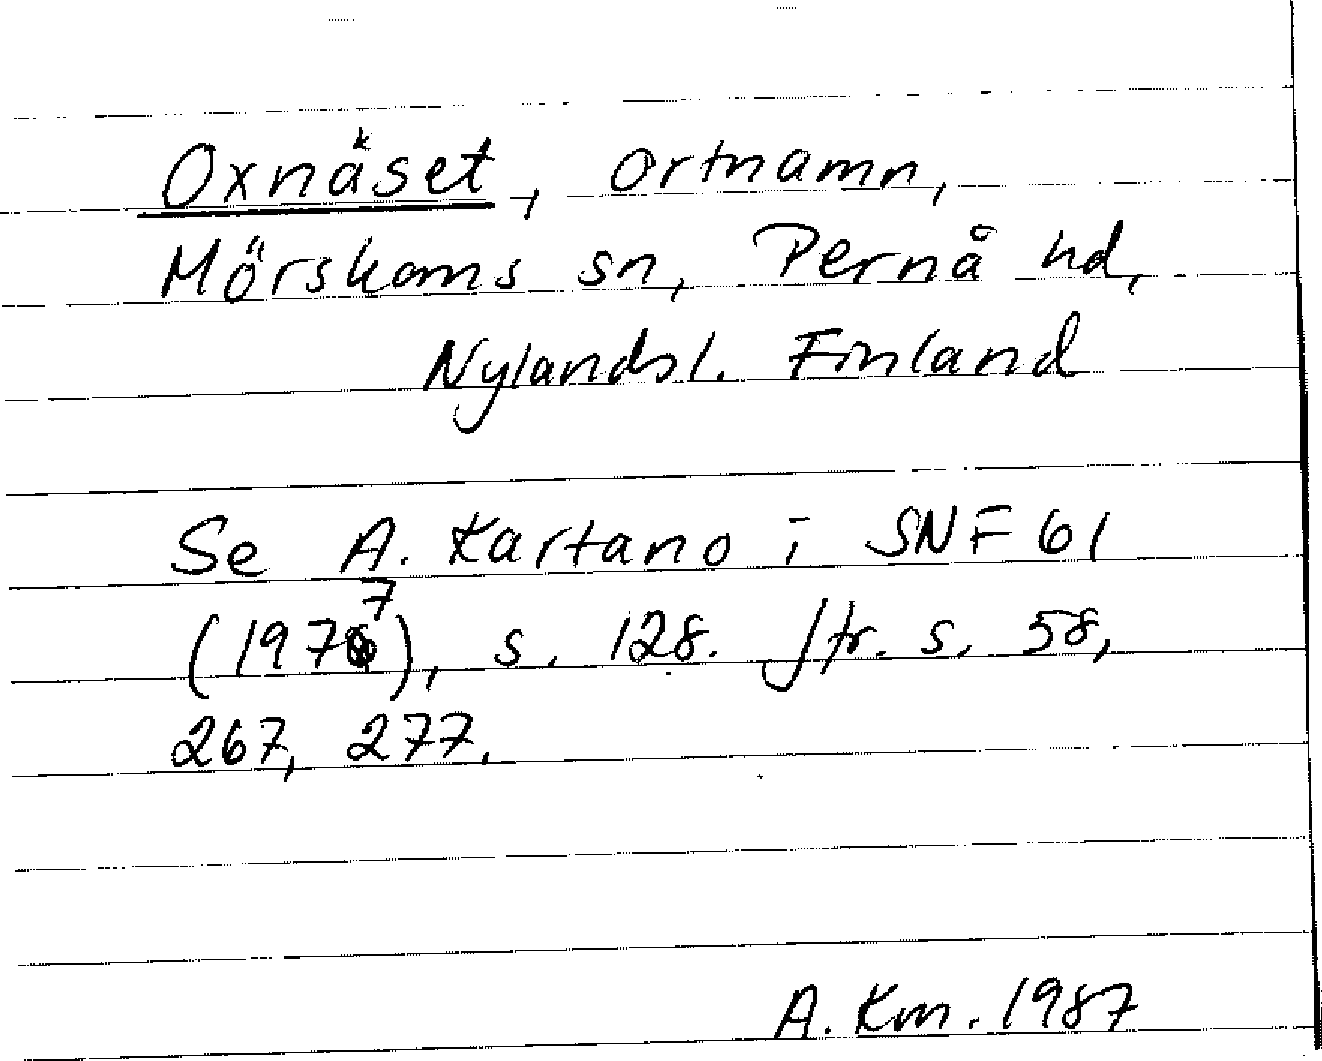 Oxnäset, ortnamn,
Mörskoms sn, Pernå hd,
Nylandsl. Finland
Se A. Kartano i SNF 61
(1977), s. 128. Jfr. s. 58,
267, 277.
A. Km. 1987